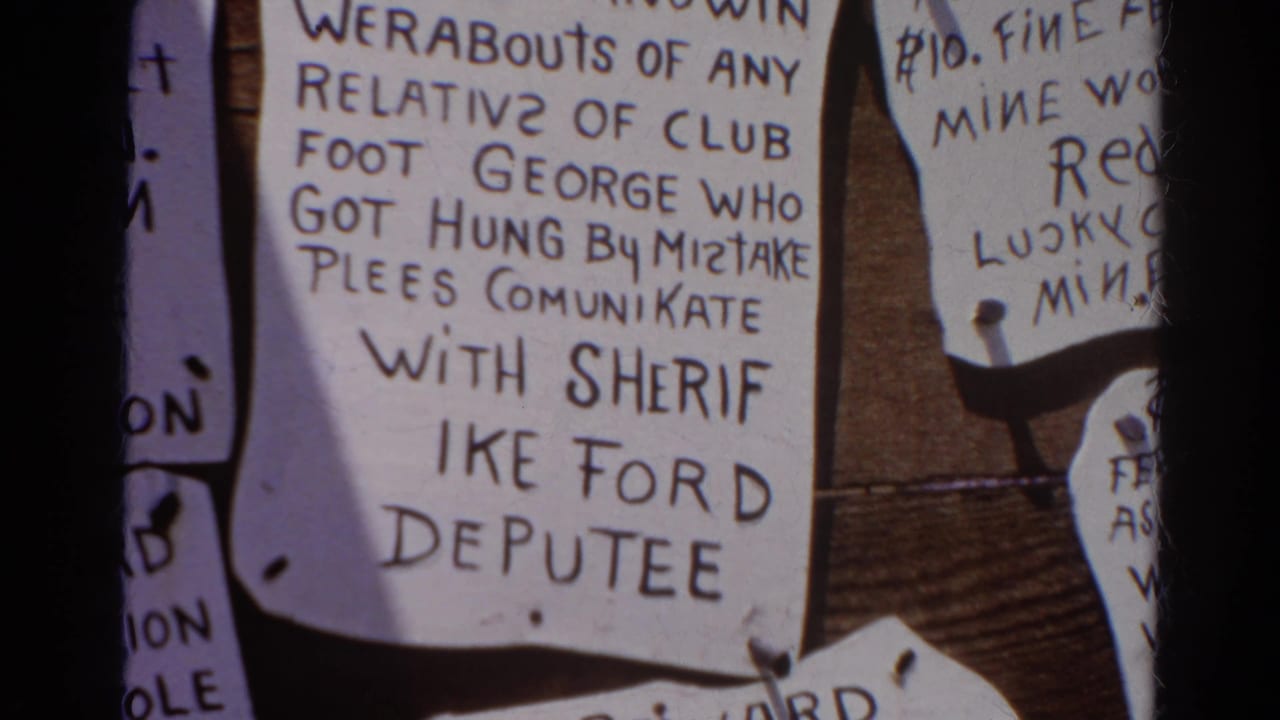 WERABOUTS OF ANY
RELATIVS OF CLUB
FOOT GEORGE WHO
GOT HUNG By MISTAKE
PLEES COMUNIKATE
WITH SHERIF
IKE FORD
DEPUTEE
$10. FINE
MINE
Red
LUCKY
MIN.
ON
ION
OLE
AS